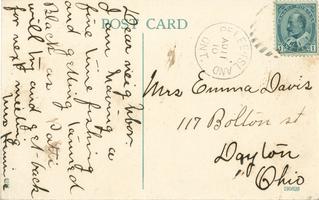 POST CARD
Dear neighbor
I am having a
fine time fishing
and getting tanned
Black as Patti
will try and get back
for next meeting
Mrs
PELEE ISLAND
ONT.
Mrs Emma Davis
117 Bolton st
Dayton
Ohio